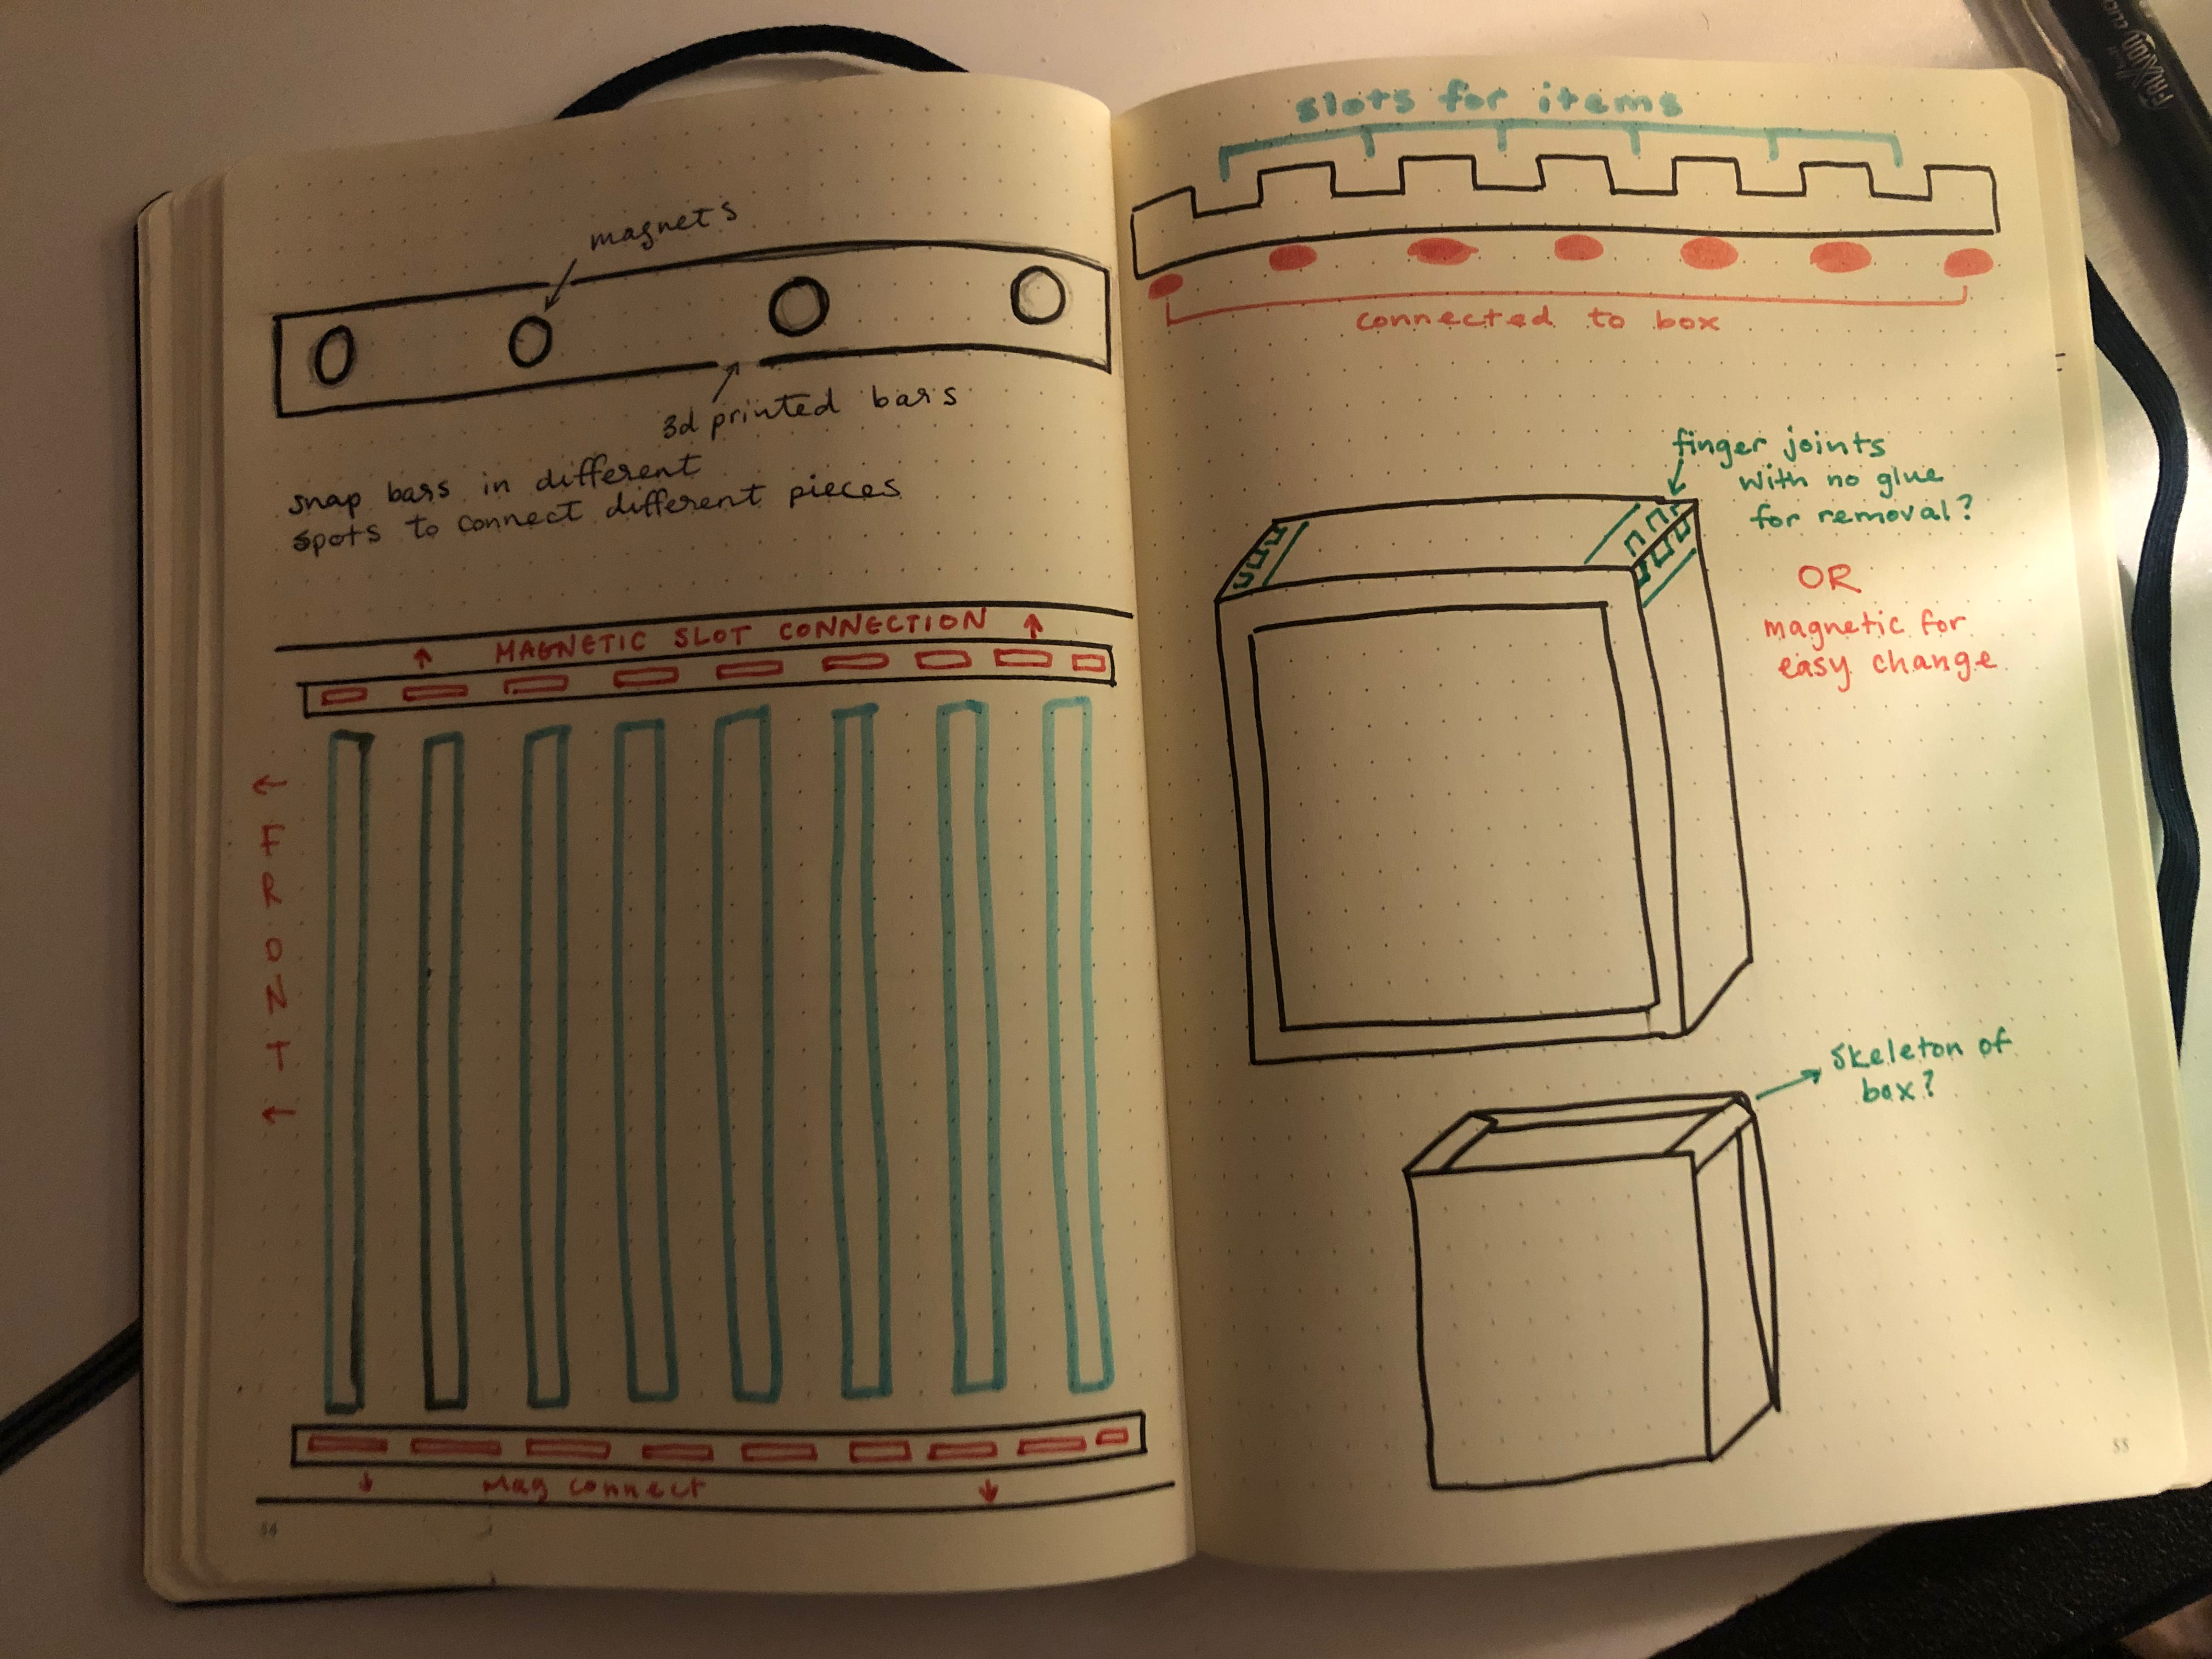 magnets
3d printed bars
snap bars in different
spots to connect different pieces
MAGNETIC SLOT CONNECTION
FRONT
Mag connect
54
slots for items
connected to box
finger joints
with no glue
for removal?
OR
magnetic for
easy change
Skeleton of
box?
55
FRIXION